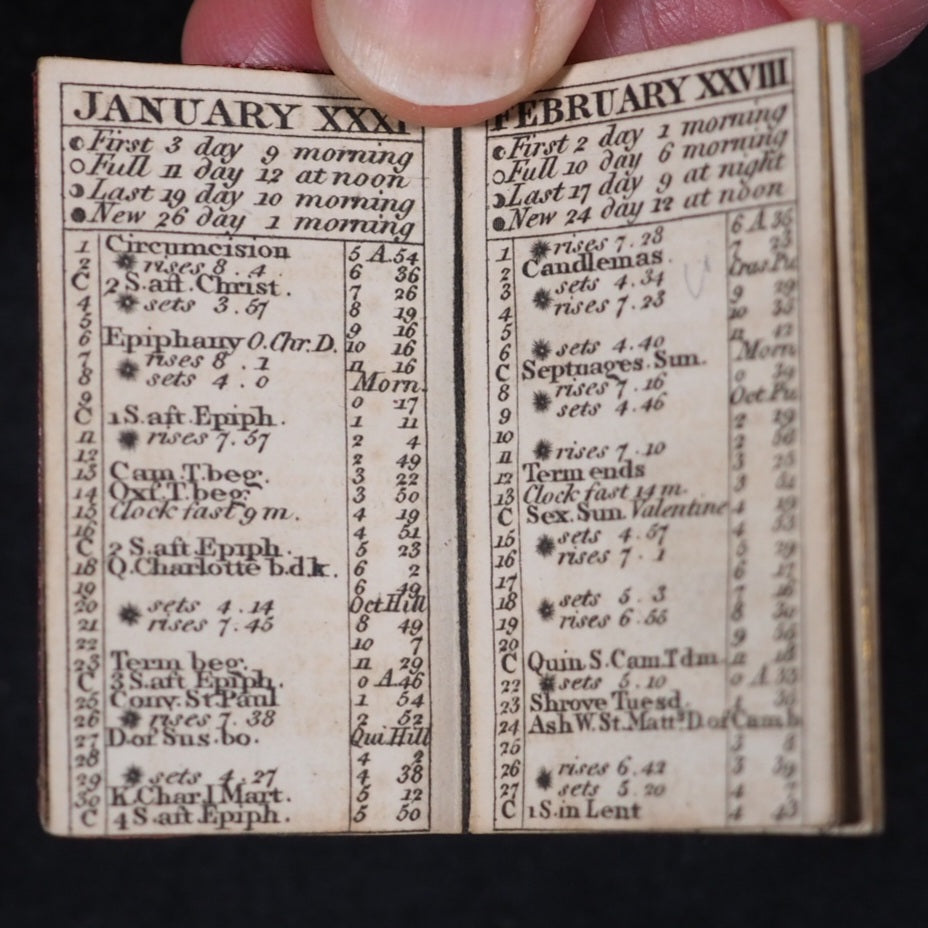 JANUARY XXXI
First 3 day 9 morning
Full 11 day 12 at noon
Last 19 day 10 morning
New 26 day 1 morning
1 Circumcision 5 A.54
2 rises 8.4 6 36
C 2 S.aft.Christ. 7 26
4 sets 3.57 8 19
5 9 16
6 Epiphany O.Chr.D. 10 16
7 rises 8.1 11 16
8 sets 4.0 Morn.
9 0 17
C 1 S.aft.Epiph. 1 11
11 rises 7.57 2 4
12 2 49
13 Cam.T.beg. 3 22
14 Oxf.T.beg. 3 50
15 Clock fast 9 m. 4 19
16 4 51
C 2 S.aft.Epiph. 5 23
18 Q.Charlotte b.d.k. 6 2
19 6 49
20 sets 4.14 Oct Hill
21 rises 7.45 8 49
22 10 7
23 Term beg. 11 29
C 3 S.aft Epiph. 0 A.46
25 Conv. St.Paul 1 54
26 rises 7.38 2 52
27 D.of Sus.bo. Qui Hill
28 4 2
29 sets 4.27 4 38
30 K.Char.I Mart. 5 12
C 4 S.aft.Epiph. 5 50
FEBRUARY XXVIII
First 2 day 1 morning
Full 10 day 6 morning
Last 17 day 9 at night
New 24 day 12 at noon
1 rises 7.28 6 A.35
2 Candlemas. 7
3 sets 4.34
4 rises 7.23 9 29
5 10 35
6 sets 4.40 11 42
C Septuages. Sun. Morn
8 rises 7.16 0 39
9 sets 4.46 Oct.Pu.
10 2 19
11 rises 7.10 2
12 Term ends 3 25
13 Clock fast 14 m. 3 51
C Sex.Sun. Valentine 4 19
15 sets 4.57 4 53
16 rises 7.1 5 29
17 6 17
18 sets 5.3 7 16
19 rises 6.55 8 30
20 9
C Quin S.Cam.T.d m. 11 18
22 sets 5.10 0 A.33
23 Shrove Tuesd. 1
24 Ash W.St.Matt.s D of Camb
25 3 8
26 rises 6.42 3 39
27 sets 5.20 4
C 1 S.in Lent 4 43